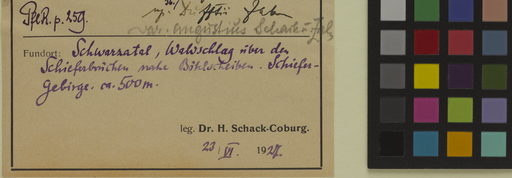 p. 259.
var. angustius Schack u.
Fundort: Schwarzatal, Waldschlag über den
Schieferbrüchen nahe Böhlscheiben. Schiefer-
gebirge. ca. 500 m.
leg. Dr. H. Schack-Coburg.
23 VI. 192